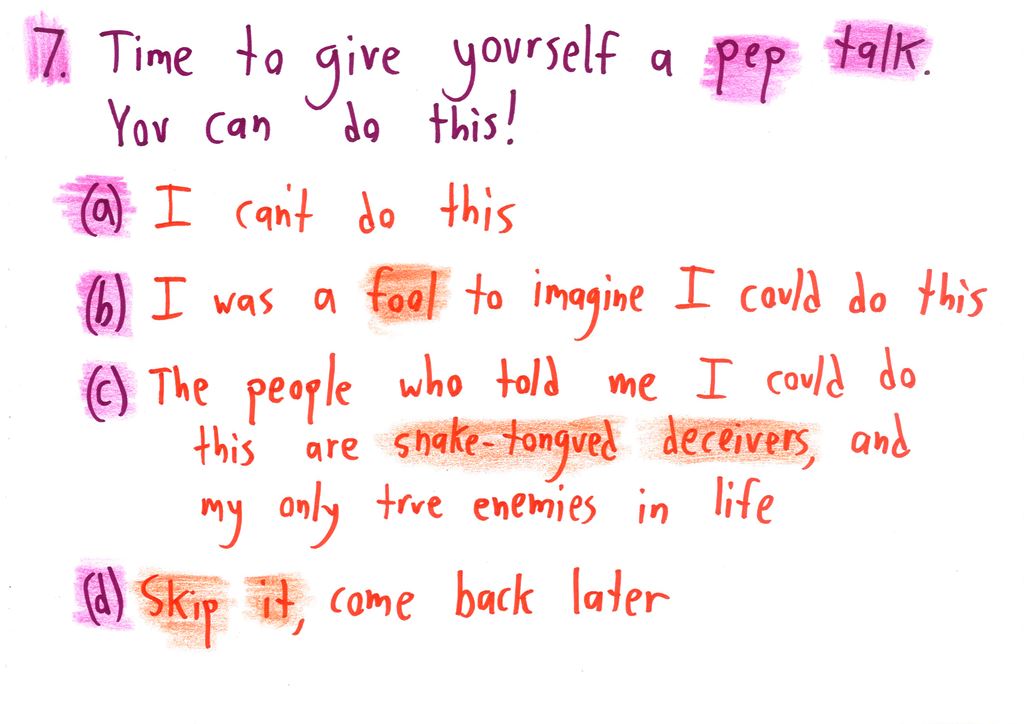 7. Time to give yourself a pep talk.
You can do this!
(a) I can't do this
(b) I was a fool to imagine I could do this
(c) The people who told me I could do
this are snake-tongued deceivers, and
my only true enemies in life
(d) Skip it, come back later